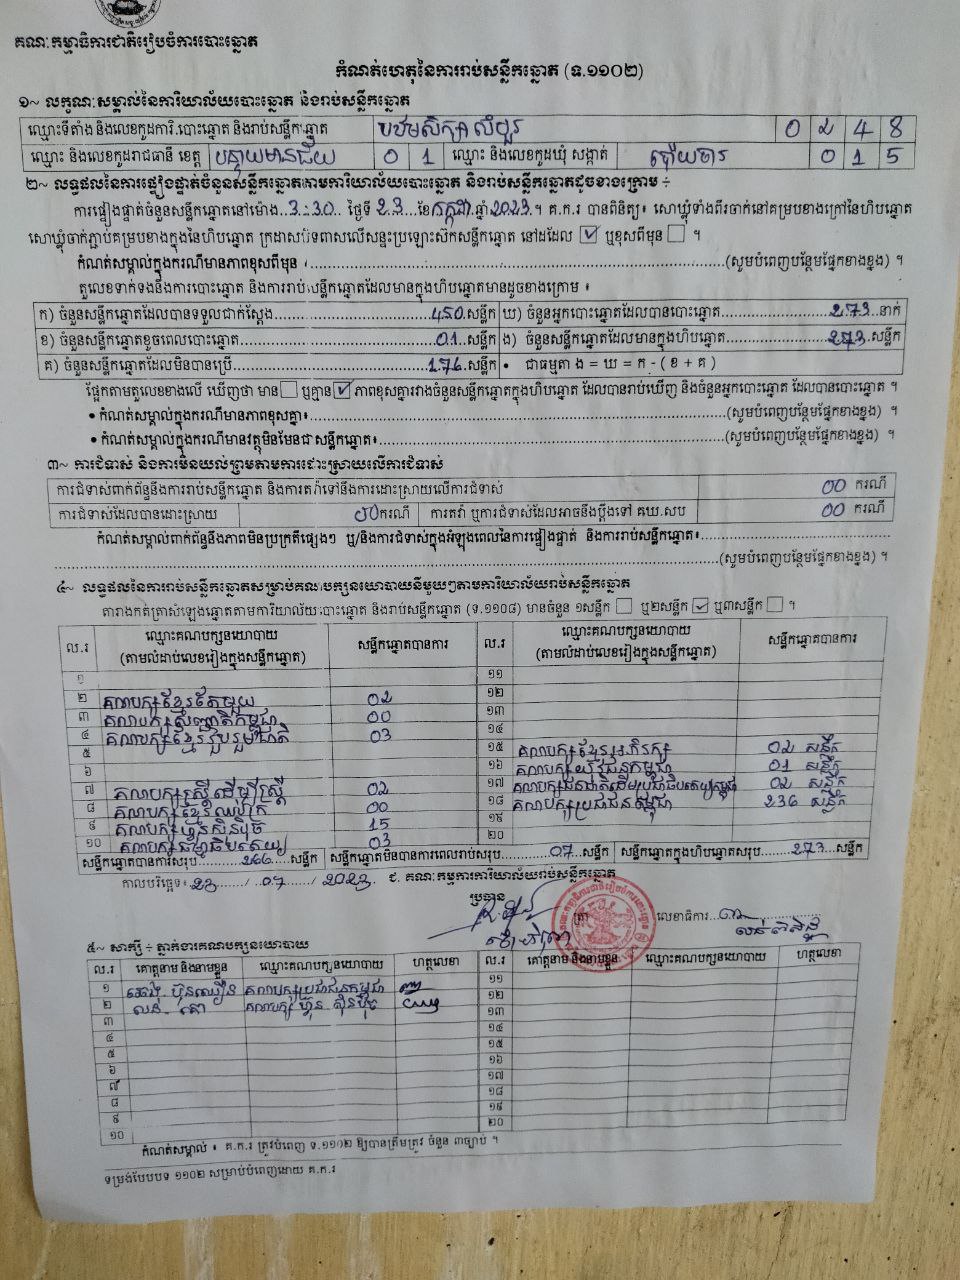 គណៈកម្មាធិការជាតិរៀបចំការបោះឆ្នោត
កំណត់ហេតុនៃការរាប់សន្លឹកឆ្នោត (ទ.១១០២)
១~ លក្ខណៈសម្គាល់នៃការិយាល័យបោះឆ្នោត និងរាប់សន្លឹកឆ្នោត
ឈ្មោះទីតាំង និងលេខកូដការិ.បោះឆ្នោត និងរាប់សន្លឹកឆ្នោត បឋមសិក្សា 0 2 4 8
ឈ្មោះ និងលេខកូដរាជធានី ខេត្ត បន្ទាយមានជ័យ 0 1 ឈ្មោះ និងលេខកូដឃុំ សង្កាត់ ប៉ោយចារ 0 1 5
២~ លទ្ធផលនៃការផ្ទៀងផ្ទាត់ចំនួនសន្លឹកឆ្នោតតាមការិយាល័យបោះឆ្នោត និងរាប់សន្លឹកឆ្នោតដូចខាងក្រោម ÷
ការផ្ទៀងផ្ទាត់ចំនួនសន្លឹកឆ្នោតនៅម៉ោង..3:30.. ថ្ងៃទី 23 ខែ កក្កដា ឆ្នាំ 2023 ។ គ.ក.រ បានពិនិត្យ៖ សោឃ្លុំទាំងពីរចាក់នៅគម្របខាងក្រៅនៃហិបឆ្នោត
សោឃ្លុំចាក់ភ្ជាប់គម្របខាងក្នុងនៃហិបឆ្នោត ក្រដាសបិទពាសលើសន្ទះប្រឡោះស៊កសន្លឹកឆ្នោត នៅដដែល ☑ ឬខុសពីមុន ☐ ។
កំណត់សម្គាល់ក្នុងករណីមានភាពខុសពីមុន ៖..........(សូមបំពេញបន្ថែមផ្នែកខាងខ្នង) ។
តួលេខទាក់ទងនឹងការបោះឆ្នោត និងការរាប់សន្លឹកឆ្នោតដែលមានក្នុងហិបឆ្នោតមានដូចខាងក្រោម ៖
ក) ចំនួនសន្លឹកឆ្នោតដែលបានទទួលជាក់ស្តែង..........450 សន្លឹក ឃ) ចំនួនអ្នកបោះឆ្នោតដែលបានបោះឆ្នោត..........273 នាក់
ខ) ចំនួនសន្លឹកឆ្នោតខូចពេលបោះឆ្នោត..........01 សន្លឹក ង) ចំនួនសន្លឹកឆ្នោតដែលមានក្នុងហិបឆ្នោត..........273 សន្លឹក
គ) ចំនួនសន្លឹកឆ្នោតដែលមិនបានប្រើ..........176 សន្លឹក • ជាធម្មតា ង = ឃ = ក - ( ខ + គ )
ផ្អែកតាមតួលេខខាងលើ ឃើញថា មាន ☐ ឬគ្មាន ☑ ភាពខុសគ្នារវាងចំនួនសន្លឹកឆ្នោតក្នុងហិបឆ្នោត ដែលបានរាប់ឃើញ និងចំនួនអ្នកបោះឆ្នោត ដែលបានបោះឆ្នោត ។
• កំណត់សម្គាល់ក្នុងករណីមានភាពខុសគ្នា៖..........(សូមបំពេញបន្ថែមផ្នែកខាងខ្នង) ។
• កំណត់សម្គាល់ក្នុងករណីមានវត្ថុមិនមែនជាសន្លឹកឆ្នោត៖..........(សូមបំពេញបន្ថែមផ្នែកខាងខ្នង) ។
៣~ ការជំទាស់ និងការមិនយល់ព្រមតាមការដោះស្រាយលើការជំទាស់
ការជំទាស់ពាក់ព័ន្ធនឹងការរាប់សន្លឹកឆ្នោត និងការតវ៉ាទៅនឹងការដោះស្រាយលើការជំទាស់ 00 ករណី
ការជំទាស់ដែលបានដោះស្រាយ 00 ករណី ការតវ៉ា ឬការជំទាស់ដែលអាចនឹងប្តឹងទៅ គឃ.សប 00 ករណី
កំណត់សម្គាល់ពាក់ព័ន្ធនឹងភាពមិនប្រក្រតីផ្សេងៗ ឬ/និងការជំទាស់ក្នុងអំឡុងពេលនៃការផ្ទៀងផ្ទាត់ និងការរាប់សន្លឹកឆ្នោត៖..........
..........(សូមបំពេញបន្ថែមផ្នែកខាងខ្នង) ។
៤~ លទ្ធផលនៃការរាប់សន្លឹកឆ្នោតសម្រាប់គណបក្សនយោបាយនីមួយៗតាមការិយាល័យរាប់សន្លឹកឆ្នោត
តារាងកត់ត្រាសំឡេងឆ្នោតតាមការិយាល័យបោះឆ្នោត និងរាប់សន្លឹកឆ្នោត (ទ.១១០៨) មានចំនួន ១សន្លឹក ☐ ឬ២សន្លឹក ☑ ឬ៣សន្លឹក ☐ ។
ល.រ ឈ្មោះគណបក្សនយោបាយ (តាមលំដាប់លេខរៀងក្នុងសន្លឹកឆ្នោត) សន្លឹកឆ្នោតបានការ ល.រ ឈ្មោះគណបក្សនយោបាយ (តាមលំដាប់លេខរៀងក្នុងសន្លឹកឆ្នោត) សន្លឹកឆ្នោតបានការ
១ ១១
២ គណបក្សខ្មែរតែមួយ 02 ១២
៣ គណបក្សសញ្ជាតិកម្ពុជា 00 ១៣
៤ គណបក្សខ្មែររួបរួមជាតិ 03 ១៤
៥ ១៥ គណបក្សខ្មែរអភិរក្ស 02 សន្លឹក
៦ ១៦ គណបក្សយុវជនកម្ពុជា 01 សន្លឹក
៧ គណបក្សស្ត្រីដើម្បីស្ត្រី 02 ១៧ គណបក្សជនជាតិដើមប្រជាធិបតេយ្យកម្ពុជា 02 សន្លឹក
៨ គណបក្សខ្មែរឈប់ក្រ 00 ១៨ គណបក្សប្រជាជនកម្ពុជា 236 សន្លឹក
៩ គណបក្សហ៊្វុនស៊ិនប៉ិច 15 ១៩
១០ គណបក្សធម្មាធិបតេយ្យ 03 ២០
សន្លឹកឆ្នោតបានការសរុប..........266 សន្លឹក សន្លឹកឆ្នោតមិនបានការពេលរាប់សរុប..........07 សន្លឹក សន្លឹកឆ្នោតក្នុងហិបឆ្នោតសរុប..........273 សន្លឹក
កាលបរិច្ឆេទ៖ 23 / 07 / 2023 ជ. គណៈកម្មការការិយាល័យរាប់សន្លឹកឆ្នោត
ប្រធាន
ត្រា លេខាធិការ
៥~ សាក្សី ÷ ភ្នាក់ងារគណបក្សនយោបាយ
ល.រ គោត្តនាម និងនាមខ្លួន ឈ្មោះគណបក្សនយោបាយ ហត្ថលេខា ល.រ គោត្តនាម និងនាមខ្លួន ឈ្មោះគណបក្សនយោបាយ ហត្ថលេខា
១ គណបក្សប្រជាជនកម្ពុជា ១១
២ គណបក្ស ហ៊្វុន ស៊ិនប៉ិច ១២
៣ ១៣
៤ ១៤
៥ ១៥
៦ ១៦
៧ ១៧
៨ ១៨
៩ ១៩
១០ ២០
កំណត់សម្គាល់ ៖ គ.ក.រ ត្រូវបំពេញ ទ.១១០២ ឱ្យបានត្រឹមត្រូវ ចំនួន ៣ច្បាប់ ។
ទម្រង់បែបបទ ១១០២ សម្រាប់បំពេញដោយ គ.ក.រ